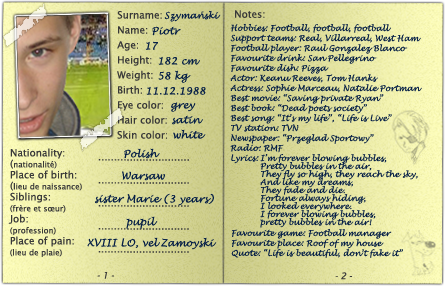 Surname: Szymański
Name: Piotr
Age: 17
Height: 182 cm
Weight: 58 kg
Birth: 11.12.1988
Eye color: grey
Hair color: satin
Skin color: white
Nationality: Polish
(nationalité)
Place of birth: Warsaw
(lieu de naissance)
Siblings: sister Marie (3 years)
(frère et sœur)
Job: pupil
(profession)
Place of pain: XVIII LO, vel Zamoyski
(lieu de plaie)
- 1 -
Notes:
Hobbies: Football, football, football
Support teams: Real, Villarreal, West Ham
Football player: Raul Gonzalez Blanco
Favourite drink: San Pellegrino
Favourite dish: Pizza
Actor: Keanu Reeves, Tom Hanks
Actress: Sophie Marceau, Natalie Portman
Best movie: "Saving private Ryan"
Best book: "Dead poets society"
Best song: "It's my life", "Life is Live"
TV station: TVN
Newspaper: "Przegląd Sportowy"
Radio: RMF
Lyrics: I'm forever blowing bubbles,
Pretty bubbles in the air,
They fly so high, they reach the sky,
And like my dreams,
They fade and die.
Fortune always hiding,
I looked everywhere.
I forever blowing bubbles,
pretty bubbles in the air!
Favourite game: Football manager
Favourite place: Roof of my house
Quote: "Life is beautiful, don't fake it"
- 2 -